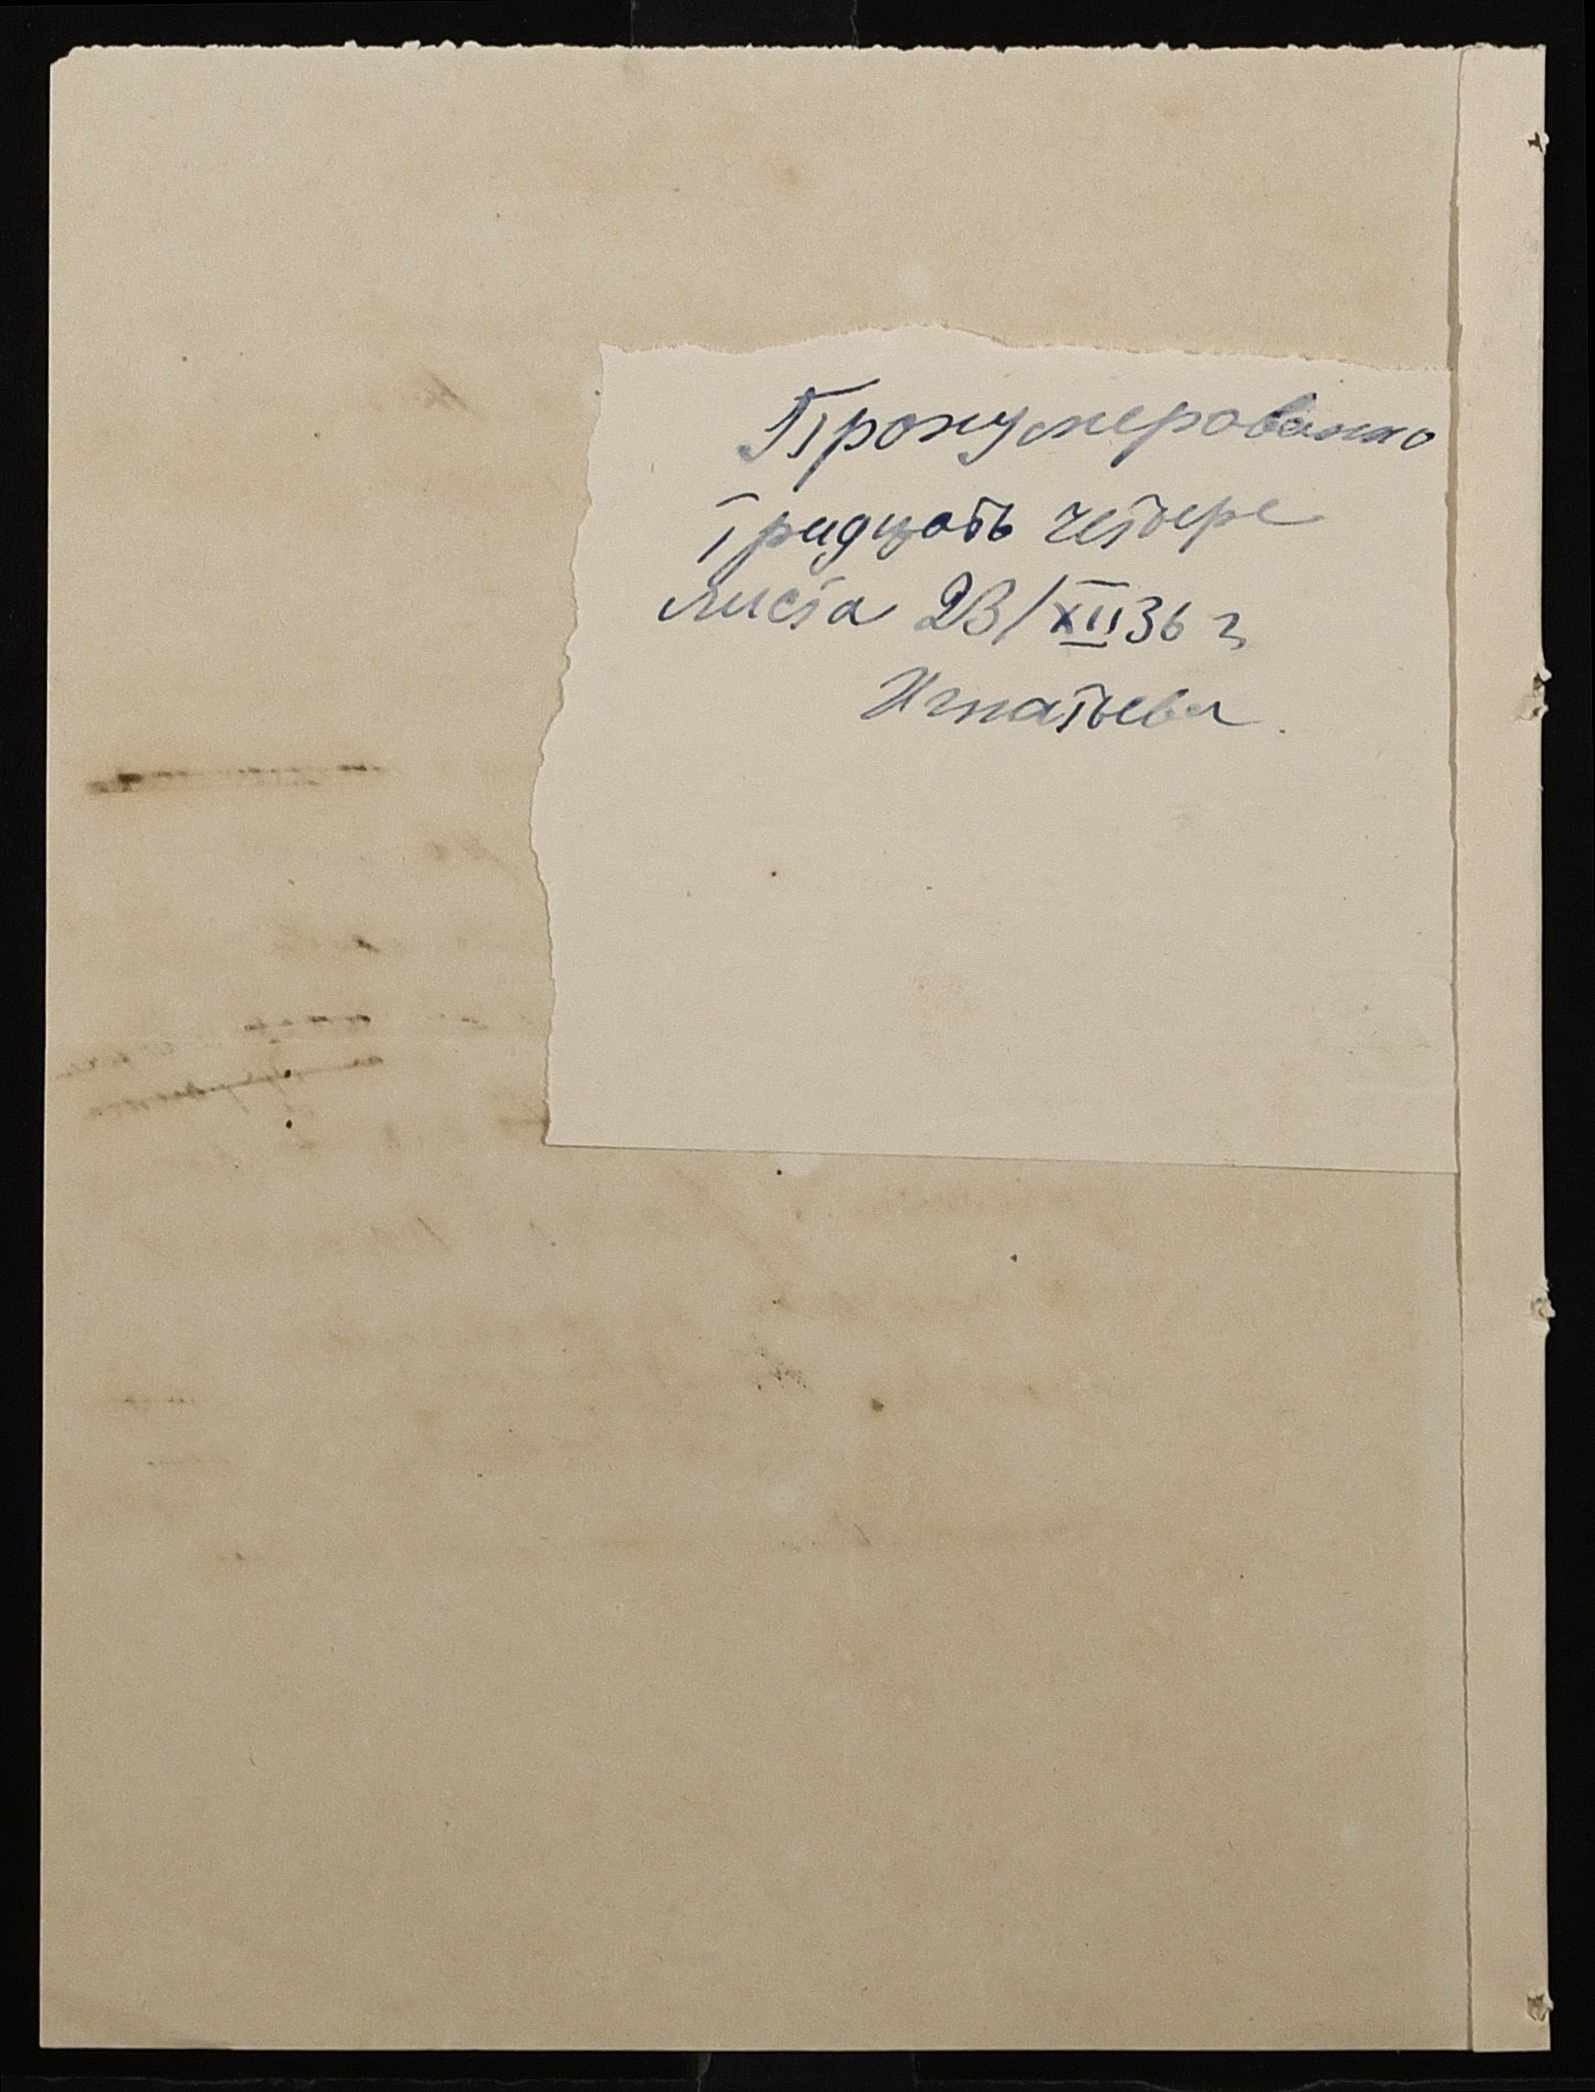 Пронумерованно
тридцать четыре
листа 23/XII 36 г.
Игнатьева